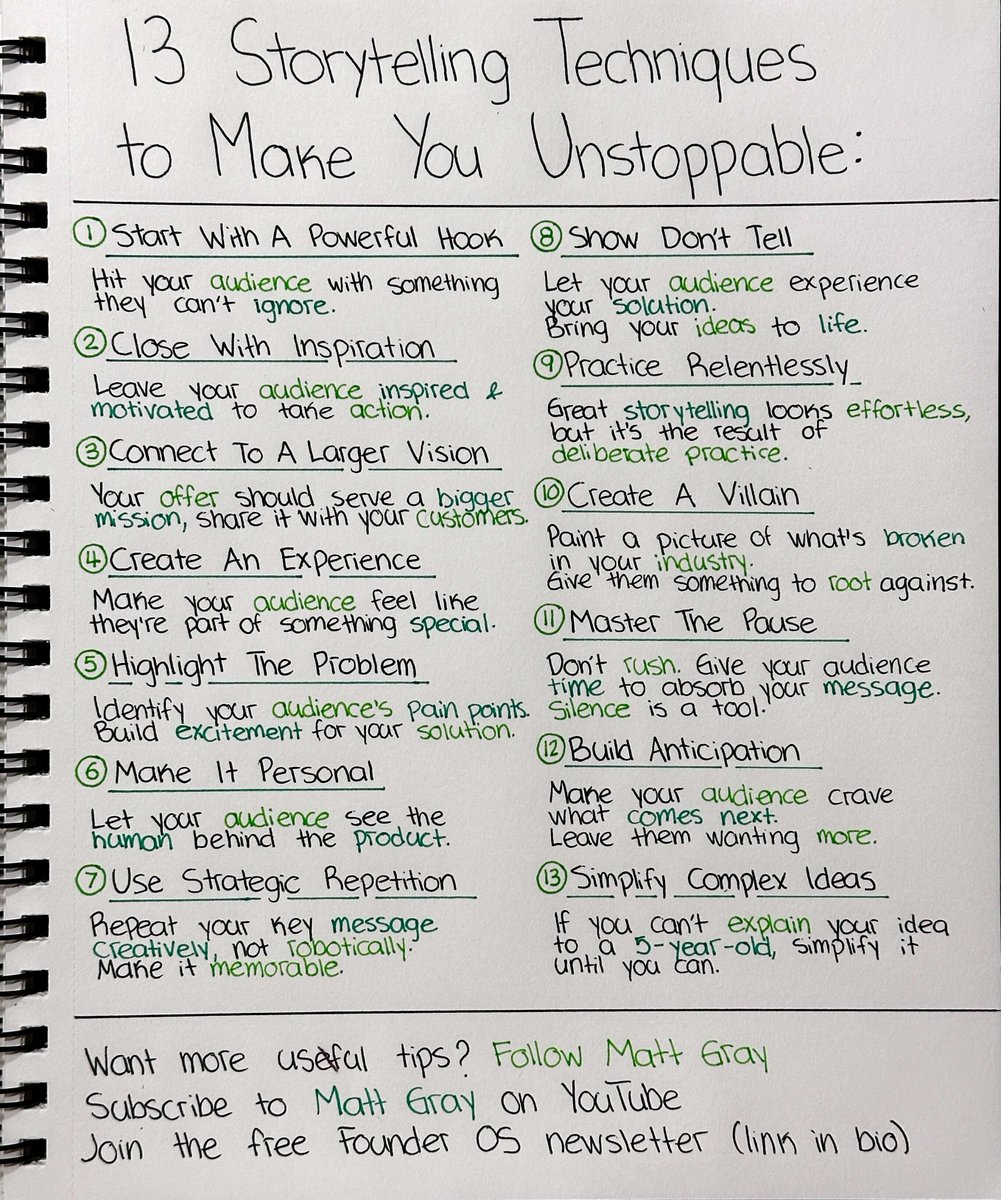 13 Storytelling Techniques
to Make You Unstoppable:
1 Start With A Powerful Hook
Hit your audience with something
they can't ignore.
2 Close With Inspiration
Leave your audience inspired &
motivated to take action.
3 Connect To A Larger Vision
Your offer should serve a bigger
mission, share it with your customers.
4 Create An Experience
Make your audience feel like
they're part of something special.
5 Highlight The Problem
Identify your audience's pain points.
Build excitement for your solution.
6 Make It Personal
Let your audience see the
human behind the product.
7 Use Strategic Repetition
Repeat your key message
creatively, not robotically.
Make it memorable.
8 Show Don't Tell
Let your audience experience
your solution.
Bring your ideas to life.
9 Practice Relentlessly
Great storytelling looks effortless,
but it's the result of
deliberate practice.
10 Create A Villain
Paint a picture of what's broken
in your industry.
Give them something to root against.
11 Master The Pause
Don't rush. Give your audience
time to absorb your message.
Silence is a tool.
12 Build Anticipation
Make your audience crave
what comes next.
Leave them wanting more.
13 Simplify Complex Ideas
If you can't explain your idea
to a 5-year-old, simplify it
until you can.
Want more useful tips? Follow Matt Gray
Subscribe to Matt Gray on YouTube
Join the free Founder OS newsletter (link in bio)